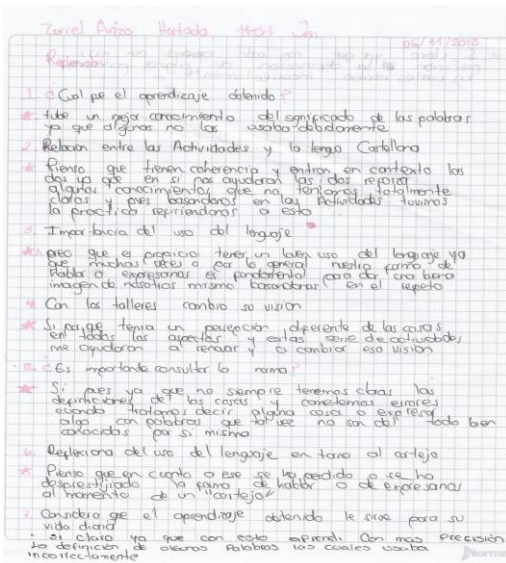 Zuriel Ariza Hurtado
06/11/2018
Reflexion
1. ¿Cual fue el aprendizaje obtenido?
* tube un mejor conocimiento del significado de las palabras
ya que algunas no las usaba debidamente
2. Relacion entre las Actividades y la lengua Castellana
* Pienso que tienen coherencia y entran en contexto las
dos ya que en si nos ayudaron las dos
algunos conocimientos que no teniamos totalmente
claros y pues basandonos en las Actividades tuvimos
la practica refiriendonos a esto
3. Importacia del uso del lenguaje
* creo que es propicio tener un buen uso del lenguaje ya
que muchas veces o por lo general nuestra forma de
Hablar o expresarnos es fundamental para dar una buena
imagen de nosotros mismo basandonos en el respeto
4. Con los talleres cambio su vision
* Si porque tenia un persepcion diferente de las cosas
en todos los aspectos y estas serie de actividades
me ayudaron a y a cambiar esa vision
5. ¿Es importante consultar la norma?
* Si pues ya que no siempre tenemos claras las
definiciones de las cosas y cometemos errores
cuando tratamos decir alguna cosa o expresar
algo con palabras que tal vez no son del todo bien
conocidas por si mismo
6. Reflexiona del uso del lenguaje en torno al cortejo
* Pienso que en cuanto a eso se ha perdido o se ha
desprestijiado la forma de hablar o de expresarnos
al momento de un "cortejo"
7. Considera que el aprendizaje obtenido le sirve para su
vida diaria
• si claro ya que con esto aprendi Con mas precisión
La definición de algunas Palabras las cuales usaba
incorrectamente
Norma